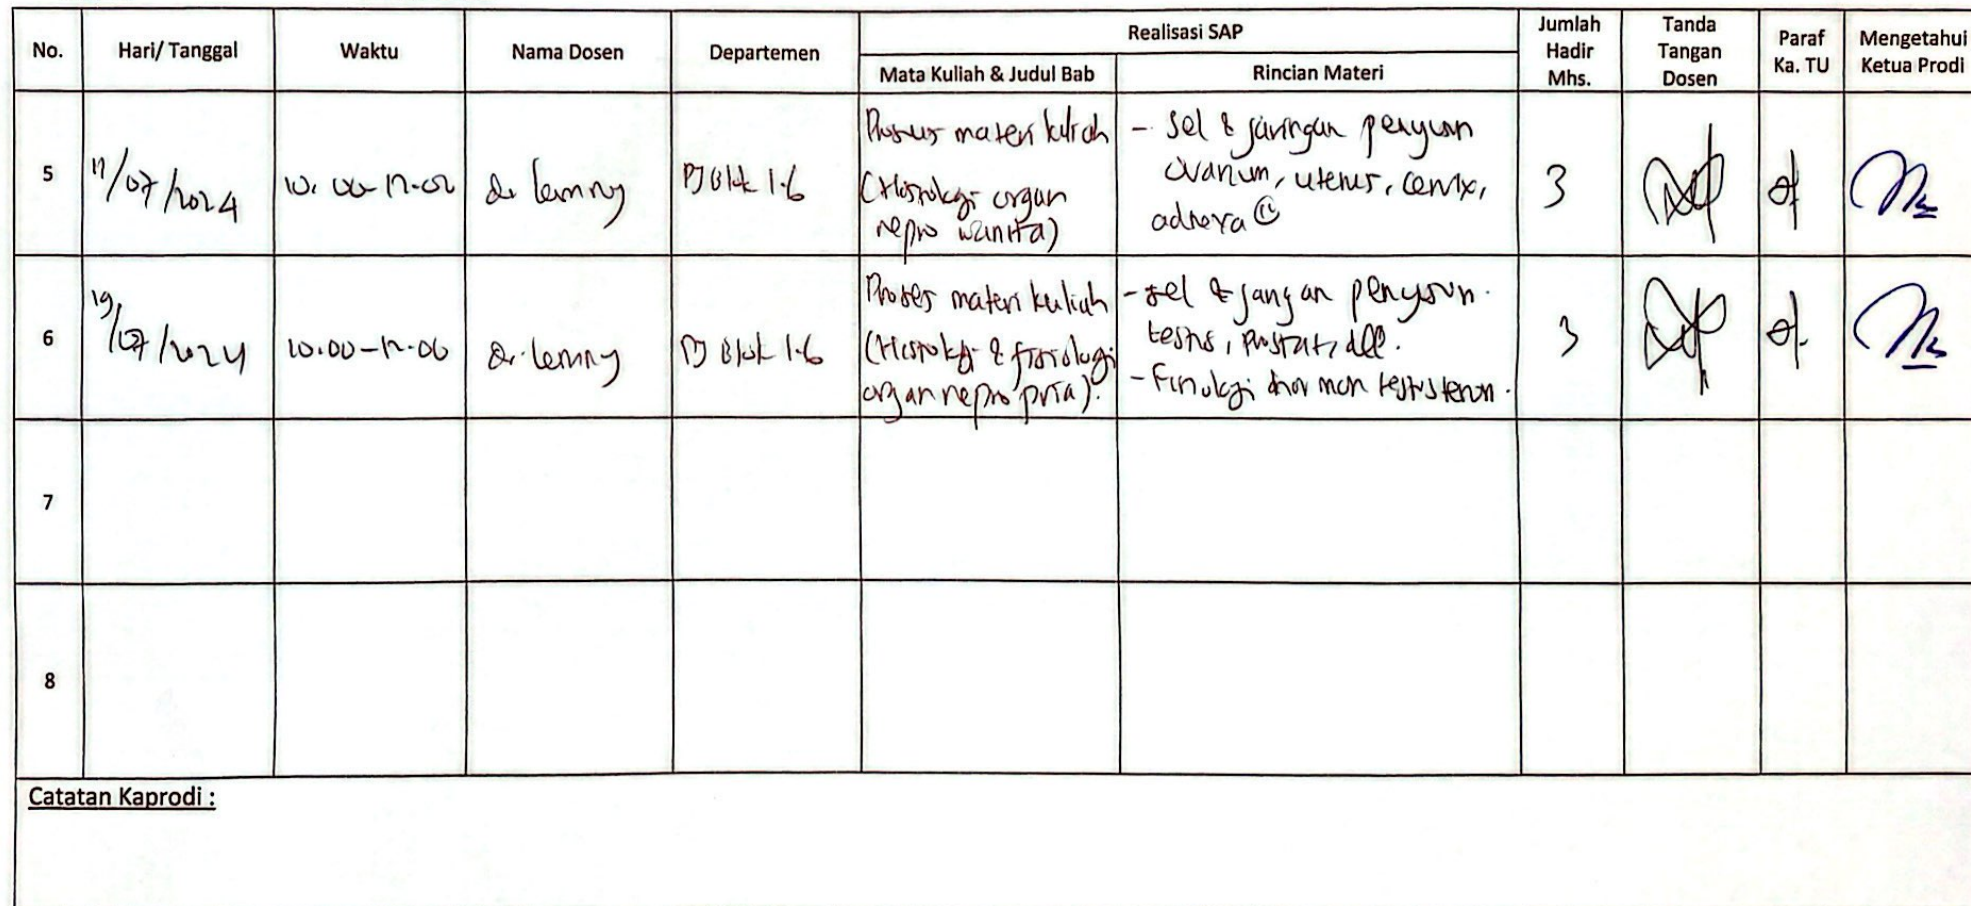 No.
Hari/ Tanggal
Waktu
Nama Dosen
Departemen
Realisasi SAP
Mata Kuliah & Judul Bab
Rincian Materi
Jumlah
Hadir
Mhs.
Tanda
Tangan
Dosen
Paraf
Ka. TU
Mengetahui
Ketua Prodi
5
/07/2024
10.00-12.00
dr.
PJ Blok 1.6
materi kuliah
(Histologi organ
repro wanita)
- Sel & jaringan penyusun
ovarium, uterus, cervix,
3
6
19/07/2024
10.00-12.00
dr.
PJ Blok 1.6
Proses materi kuliah
(Histologi & fisiologi
organ repro pria).
- sel & jaringan penyusun
testis, prostat, dll.
- Fisiologi hormon testosteron.
3
7
8
Catatan Kaprodi :